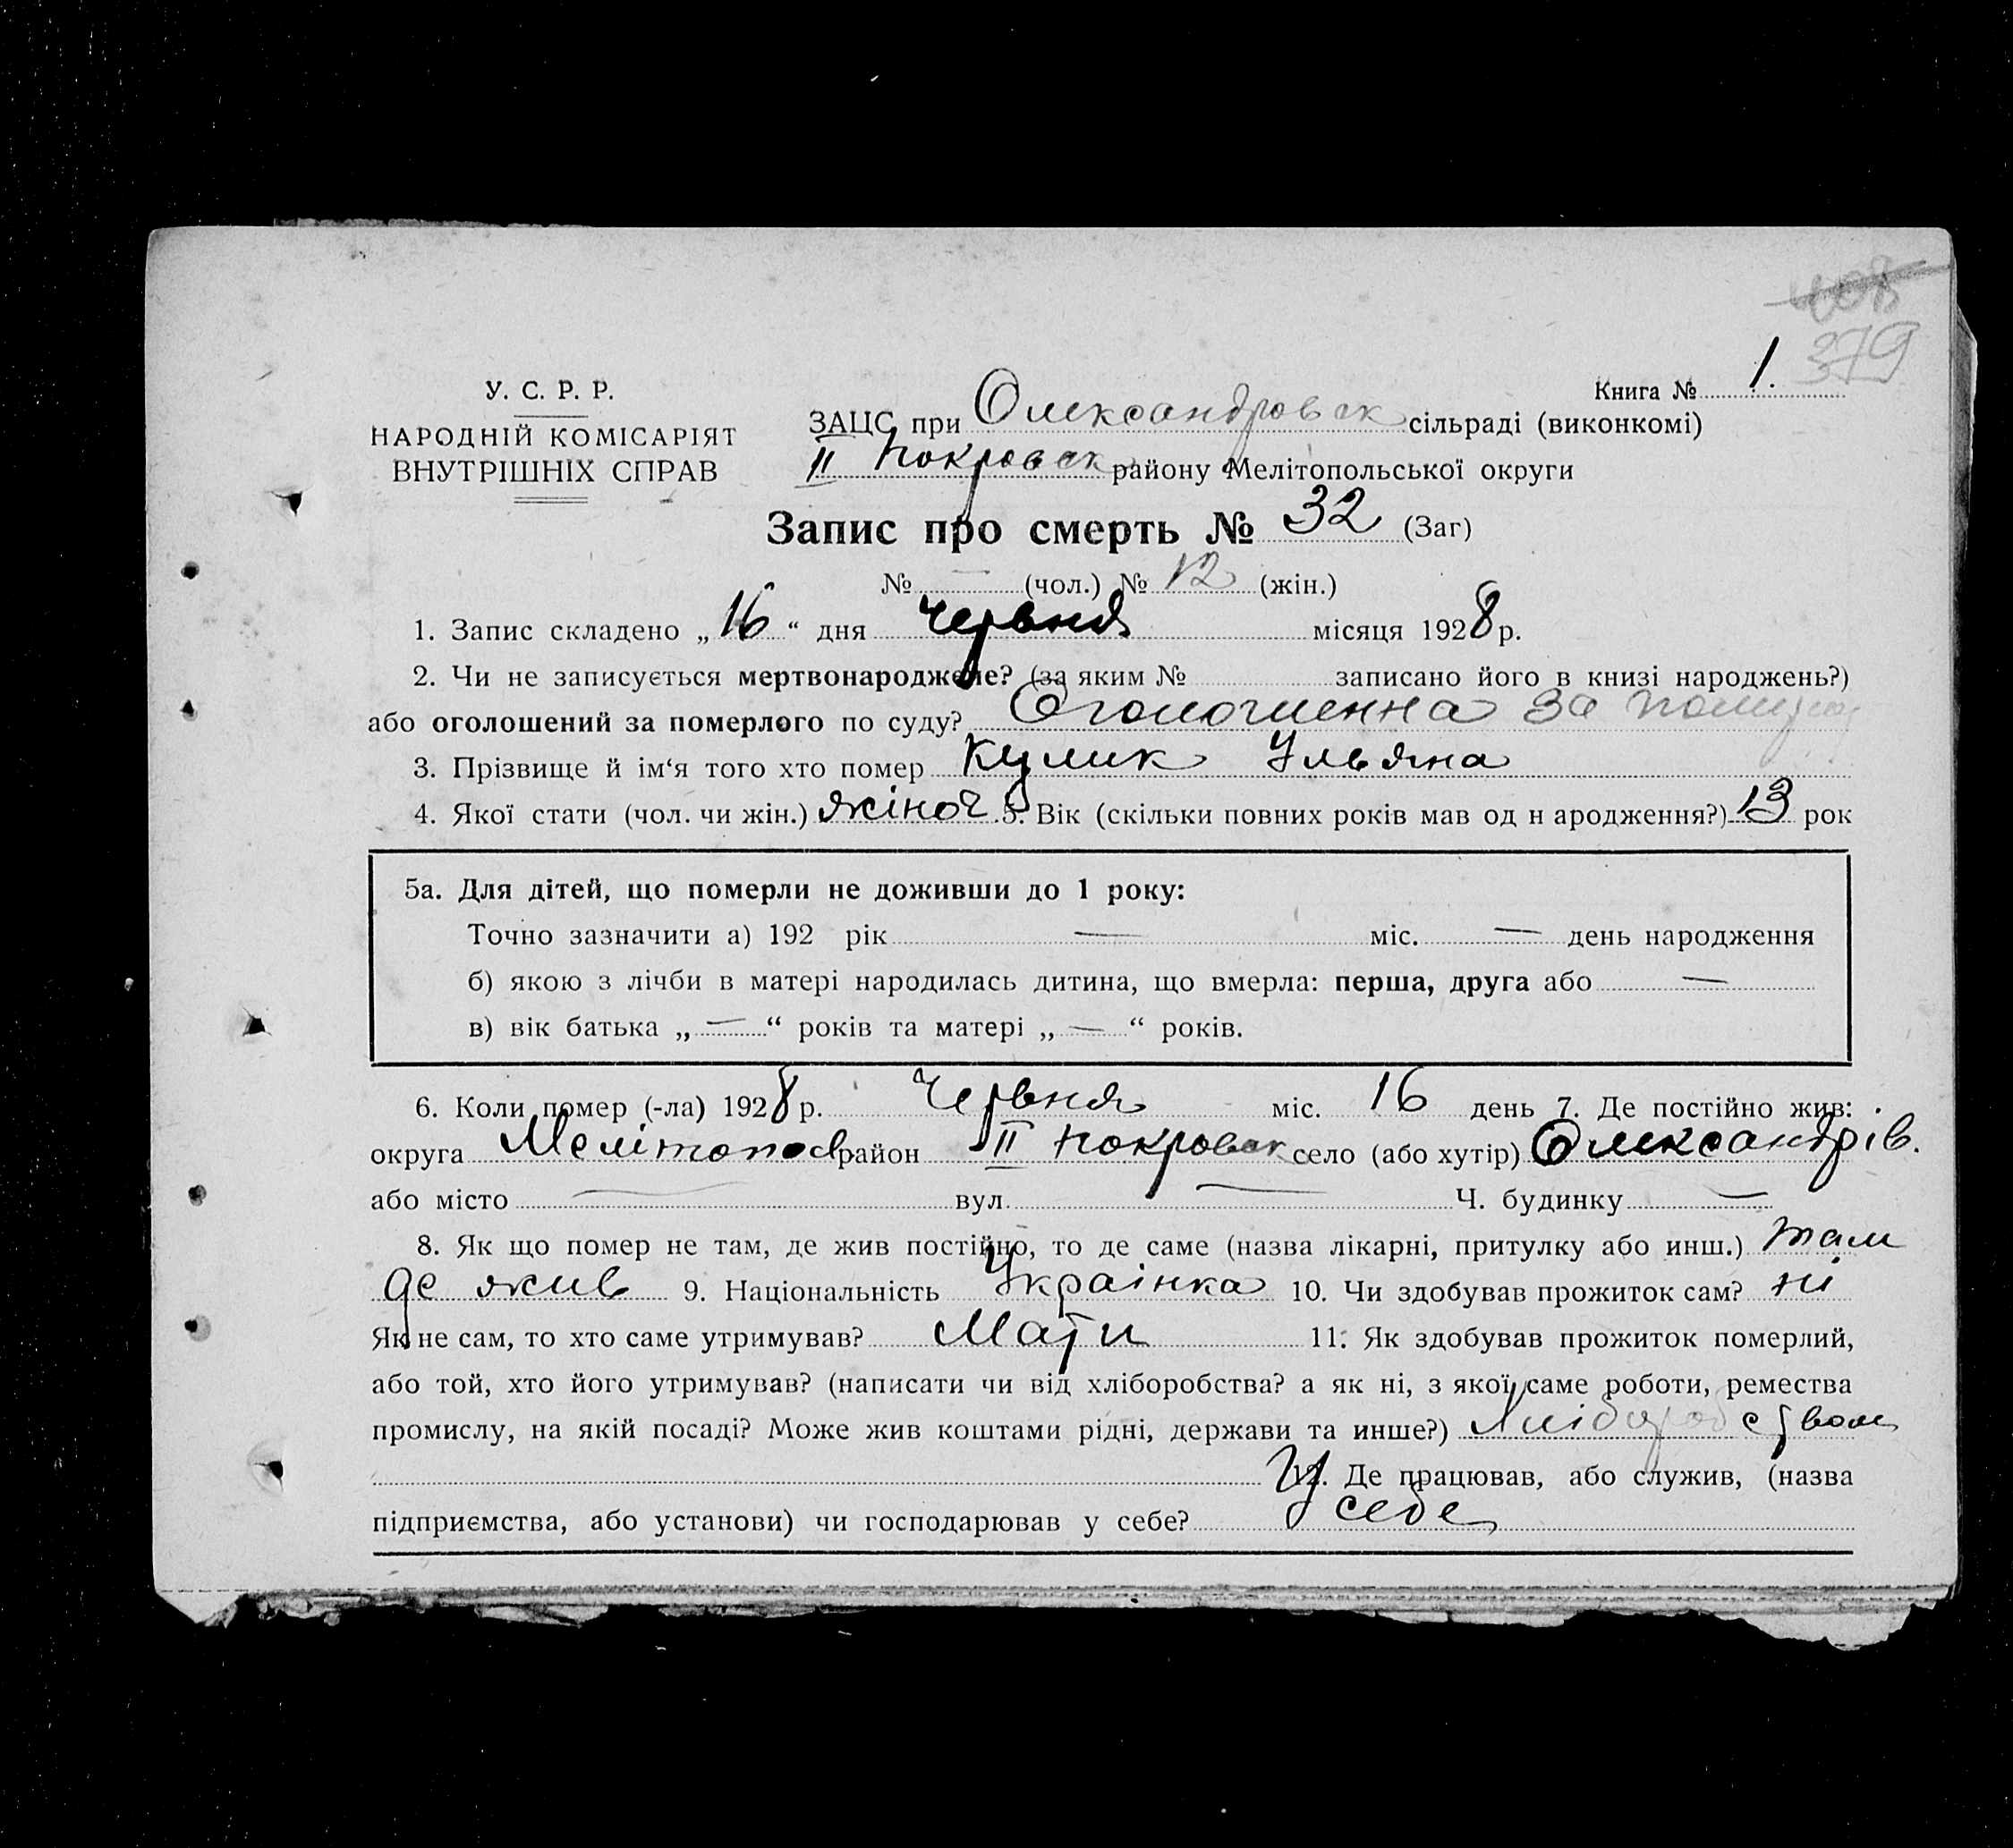 408
379
Книга № 1.
У. С. Р. Р.
НАРОДНІЙ КОМІСАРІЯТ
ВНУТРІШНІХ СПРАВ
ЗАЦС при Олександровск сільраді (виконкомі)
II Покровск району Мелітопольської округи
Запис про смерть № 32 (Заг)
№ — (чол.) № 12 (жін.)
1. Запис складено „ 16 “ дня червня місяця 1928 р.
2. Чи не записується мертвонароджене? (за яким № записано його в книзі народжень?)
або оголошений за померлого по суду? Оголошенна за
3. Прізвище й ім‘я того хто помер Кулик Ульяна
4. Якої стати (чол. чи жін.) жіноч. 5. Вік (скільки повних років мав од н ародження?) 13 рок
5а. Для дітей, що померли не доживши до 1 року:
Точно зазначити а) 192 рік — міс. — день народження
б) якою з лічби в матері народилась дитина, що вмерла: перша, друга або —
в) вік батька „ — “ років та матері „ — “ років.
6. Коли помер (-ла) 1928 р. Червня міс. 16 день 7. Де постійно жив:
округа Мелітопол район II Покровск село (або хутір) Олександрів.
або місто — вул. — Ч. будинку —
8. Як що помер не там, де жив постійно, то де саме (назва лікарні, притулку або инш.) там
де жив 9. Національність Українка 10. Чи здобував прожиток сам? ні
Як не сам, то хто саме утримував? Мати 11. Як здобував прожиток померлий,
або той, хто його утримував? (написати чи від хліборобства? а як ні, з якої саме роботи, ремества
промислу, на якій посаді? Може жив коштами рідні, держави та инше?) Хліборобством
12. Де працював, або служив, (назва
підприємства, або установи) чи господарював у себе? У себе